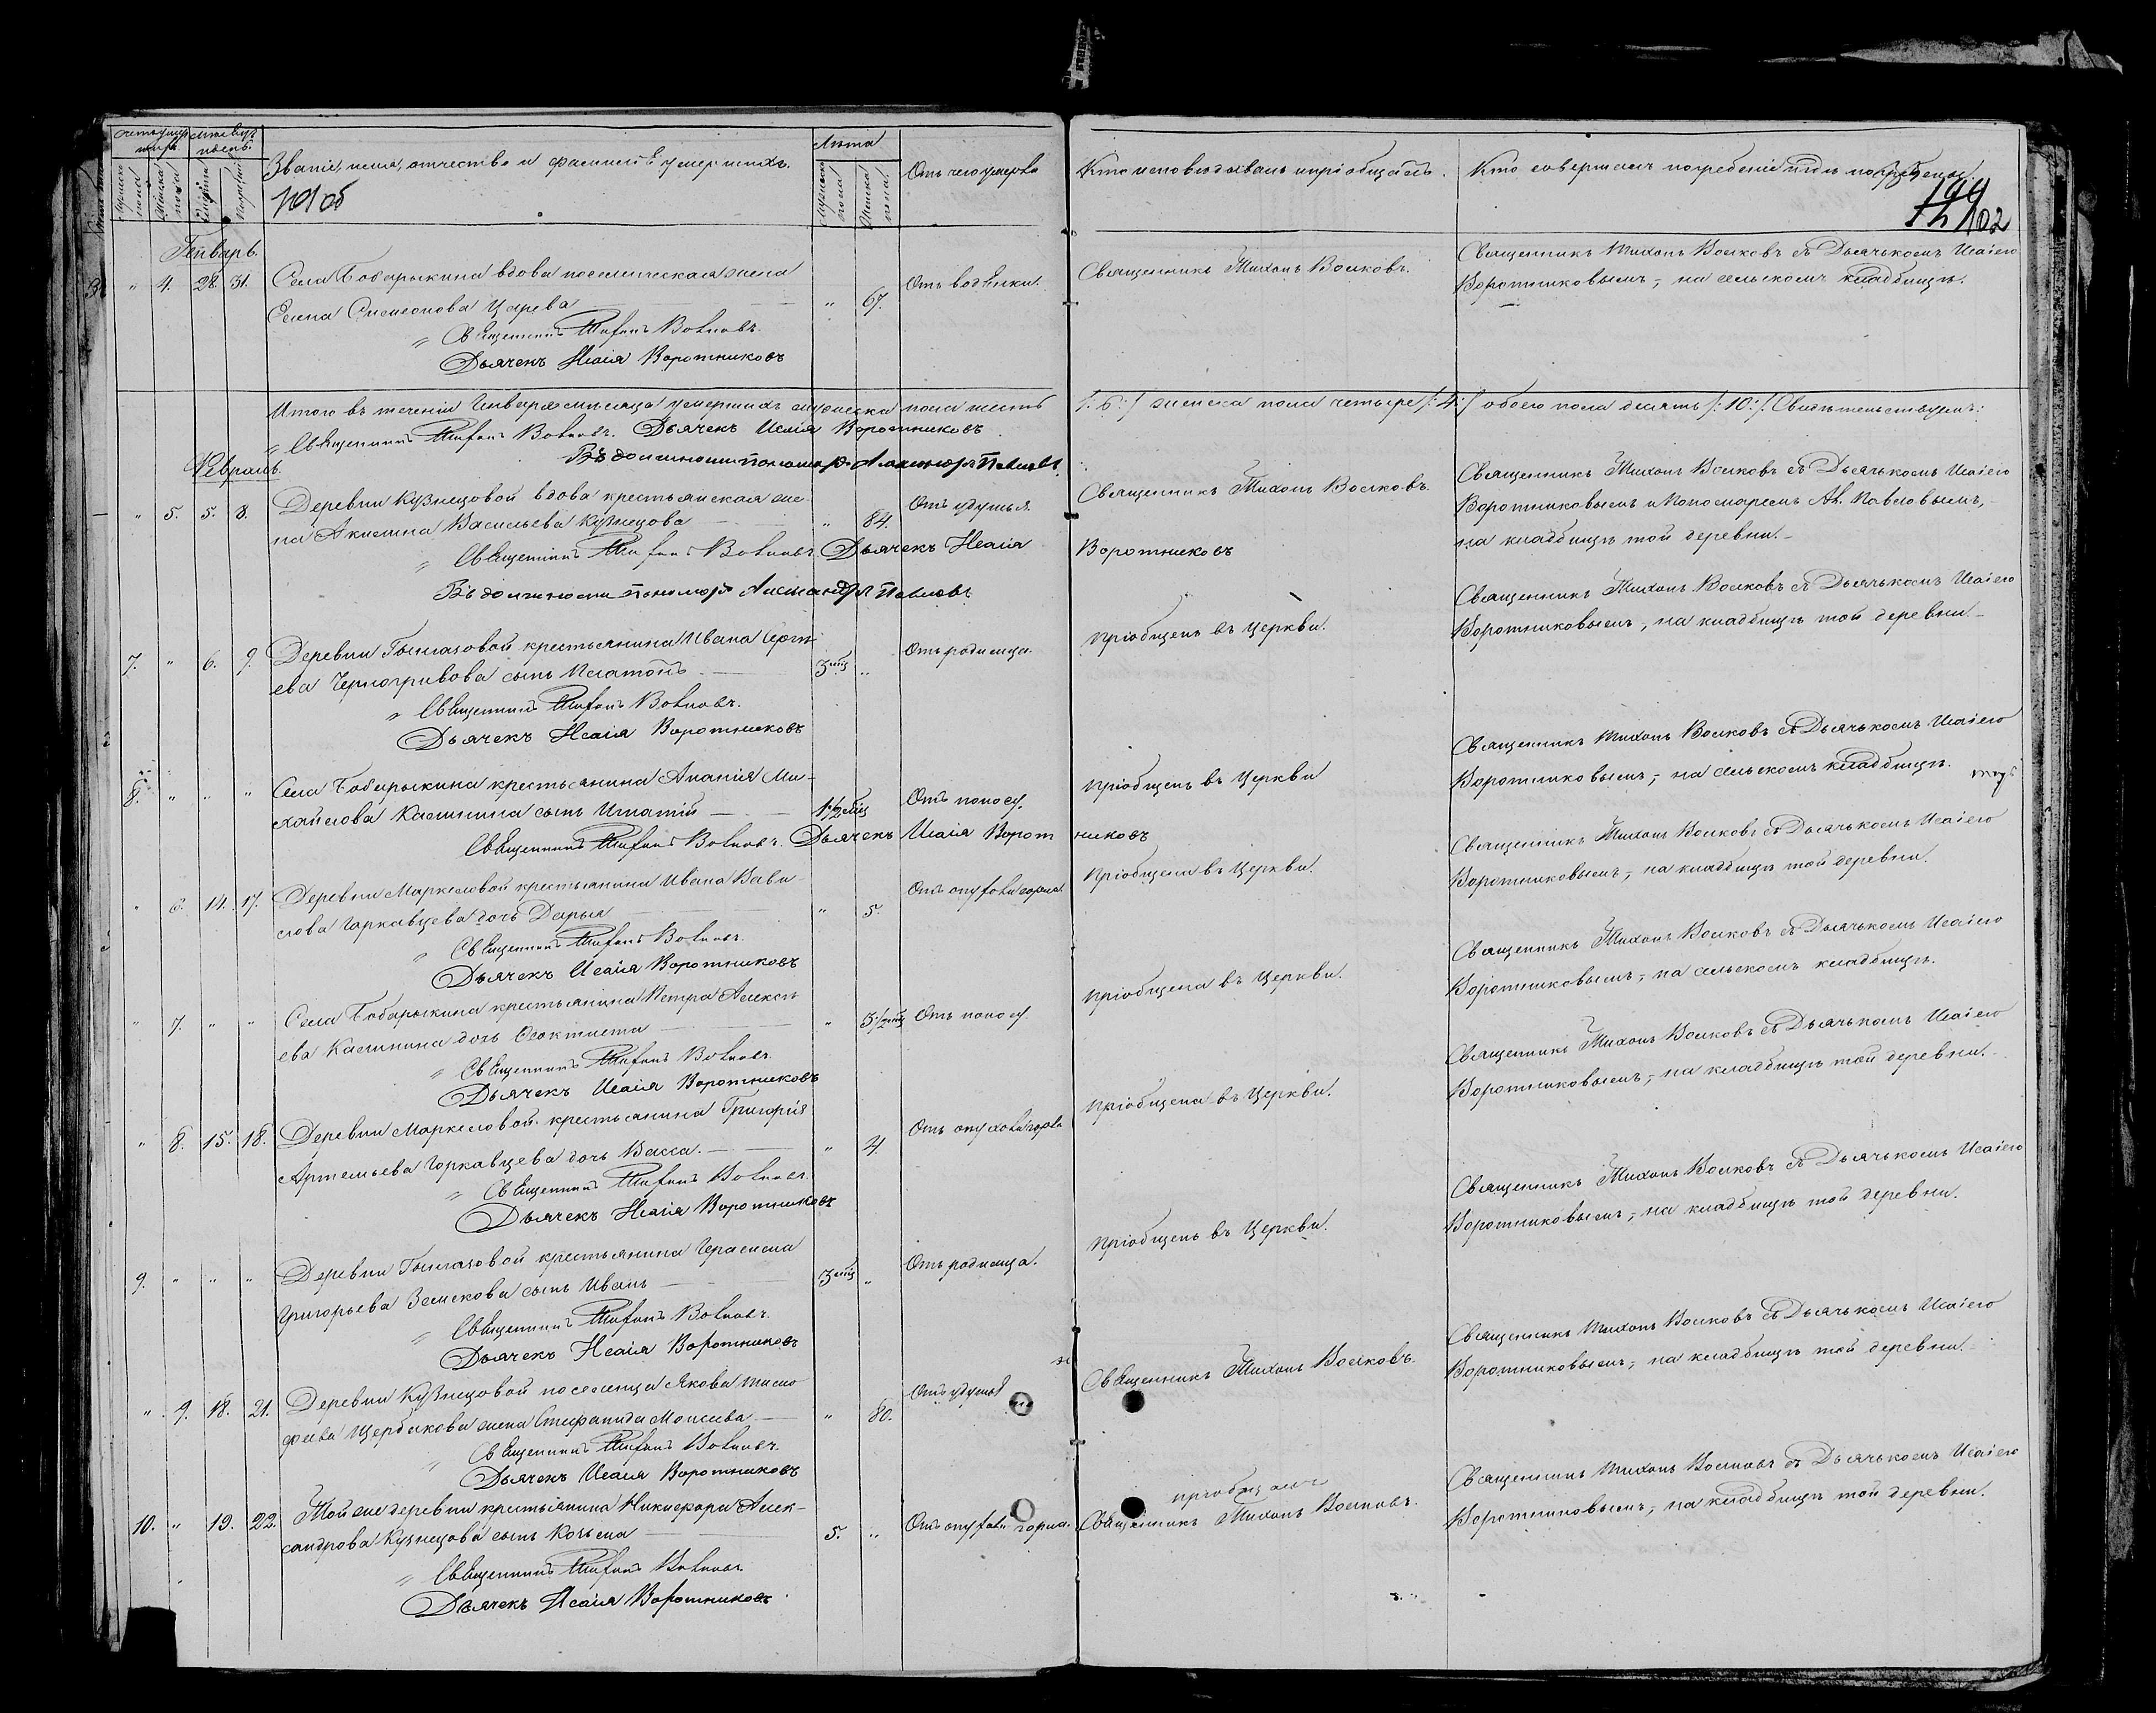 Счетъ умер-
шихъ.
Мѣсяцъ и день.
Мужеска пола
Женска пола
Смерти
Погребенія
Званіе, имя, отчество и фамилія умершихъ.
Лѣта
Мужеска пола
Женска пола.
Отъ чего умеръ
Кто исповѣдывалъ и пріобщалъ.
Кто совершалъ погребеніе и гдѣ погребены.
101 об
102
Генварь.
" 4. 28. 31. Села Бобарыкина вдова поселическая жена
Елена Симеонова Царева " 67. Отъ водянки.
Священникъ Тихонъ Волковъ.
Священникъ Тихонъ Волковъ съ Дьячькомъ Исаіею
Воротниковымъ, на сельскомъ кладбищѣ.
" Священникъ Тихонъ Волковъ.
Дьячекъ Исаія Воротниковъ
Итого въ теченіи Генваря мѣсяца умершихъ мужеска пола шесть /: 6 :/ женска пола четыре /: 4 :/ обоего пола десять /: 10 :/. Свидѣтельствуемъ:
" Священникъ Тихонъ Волковъ. Дьячекъ Исаія Воротниковъ
Въ должности пономаря Александръ Павловъ.
Февраль.
" 5. 5. 8. Деревни Кузнецовой вдова крестьянская же-
на Акилина Васильева Кузнецова " 84. Отъ удушья.
Священникъ Тихонъ Волковъ.
Священникъ Тихонъ Волковъ съ Дьячькомъ Исаіею
Воротниковымъ и Пономаремъ Ал. Павловымъ,
на кладбищѣ той деревни.
" Священникъ Тихонъ Волковъ. Дьячекъ Исаія Воротниковъ
Въ должности пономаря Александръ Павловъ
7. " 6. 9. Деревни крестьянина Ивана Серге-
ева Черногривова сынъ Платонъ 3 мѣц " Отъ родимца.
Пріобщенъ въ Церкви.
Священникъ Тихонъ Волковъ съ Дьячькомъ Исаіею
Воротниковымъ, на кладбищѣ той деревни.
" Священникъ Тихонъ Волковъ.
Дьячекъ Исаія Воротниковъ
8. " " " Села Бобарыкина крестьянина Ананія Ми-
хайлова Калинина сынъ Игнатій 1 1/2 мѣц Отъ поносу.
Пріобщенъ въ Церкви
Священникъ Тихонъ Волковъ съ Дьячькомъ Исаіею
Воротниковымъ, на сельскомъ кладбищѣ.
Священникъ Тихонъ Волковъ. Дьячекъ Исаія Воротниковъ
" 6. 14. 17. Деревни Маркеловой крестьянина Ивана Вави-
лова Горкавцева дочь Дарья " 5. Отъ опухоли горла.
Пріобщена въ Церкви.
Священникъ Тихонъ Волковъ съ Дьячькомъ Исаіею
Воротниковымъ, на кладбищѣ той деревни.
" Священникъ Тихонъ Волковъ.
Дьячекъ Исаія Воротниковъ
" 7. " " Села Бобарыкина крестьянина Петра Алексѣ-
ева Калинина дочь Феоктиста " 3 1/2 мѣц Отъ поносу
Пріобщена въ Церкви.
Священникъ Тихонъ Волковъ съ Дьячькомъ Исаіею
Воротниковымъ, на сельскомъ кладбищѣ.
" Священникъ Тихонъ Волковъ.
Дьячекъ Исаія Воротниковъ
" 8. 15. 18. Деревни Маркеловой крестьянина Григорія
Артемьева Горкавцева дочь Васса. " 4. Отъ опухоли горла
Пріобщена въ Церкви.
Священникъ Тихонъ Волковъ съ Дьячькомъ Исаіею
Воротниковымъ, на кладбищѣ той деревни.
" Священникъ Тихонъ Волковъ.
Дьячекъ Исаія Воротниковъ
9. " " " Деревни крестьянина Герасима
Григорьева сынъ Иванъ 3 мѣц " Отъ родимца.
Пріобщенъ въ Церкви.
Священникъ Тихонъ Волковъ съ Дьячькомъ Исаіею
Воротниковымъ, на кладбищѣ той деревни.
" Священникъ Тихонъ Волковъ.
Дьячекъ Исаія Воротниковъ
" 9. 18. 21. Деревни Кузнецовой поселенца Якова Тимо-
феева Щербакова жена Степанида Моисеева " 80. Отъ удушья
Священникъ Тихонъ Волковъ.
Священникъ Тихонъ Волковъ съ Дьячькомъ Исаіею
Воротниковымъ, на кладбищѣ той деревни.
Священникъ Тихонъ Волковъ.
Дьячекъ Исаія Воротниковъ
10. " 19. 22. Той же деревни крестьянина Никифора Алек-
сандрова Кузнецова сынъ Козьма 5. " Отъ опухоли горла.
пріобщалъ
Священникъ Тихонъ Волковъ.
Священникъ Тихонъ Волковъ съ Дьячькомъ Исаіею
Воротниковымъ, на кладбищѣ той деревни.
" Священникъ Тихонъ Волковъ.
Дьячекъ Исаія Воротниковъ.